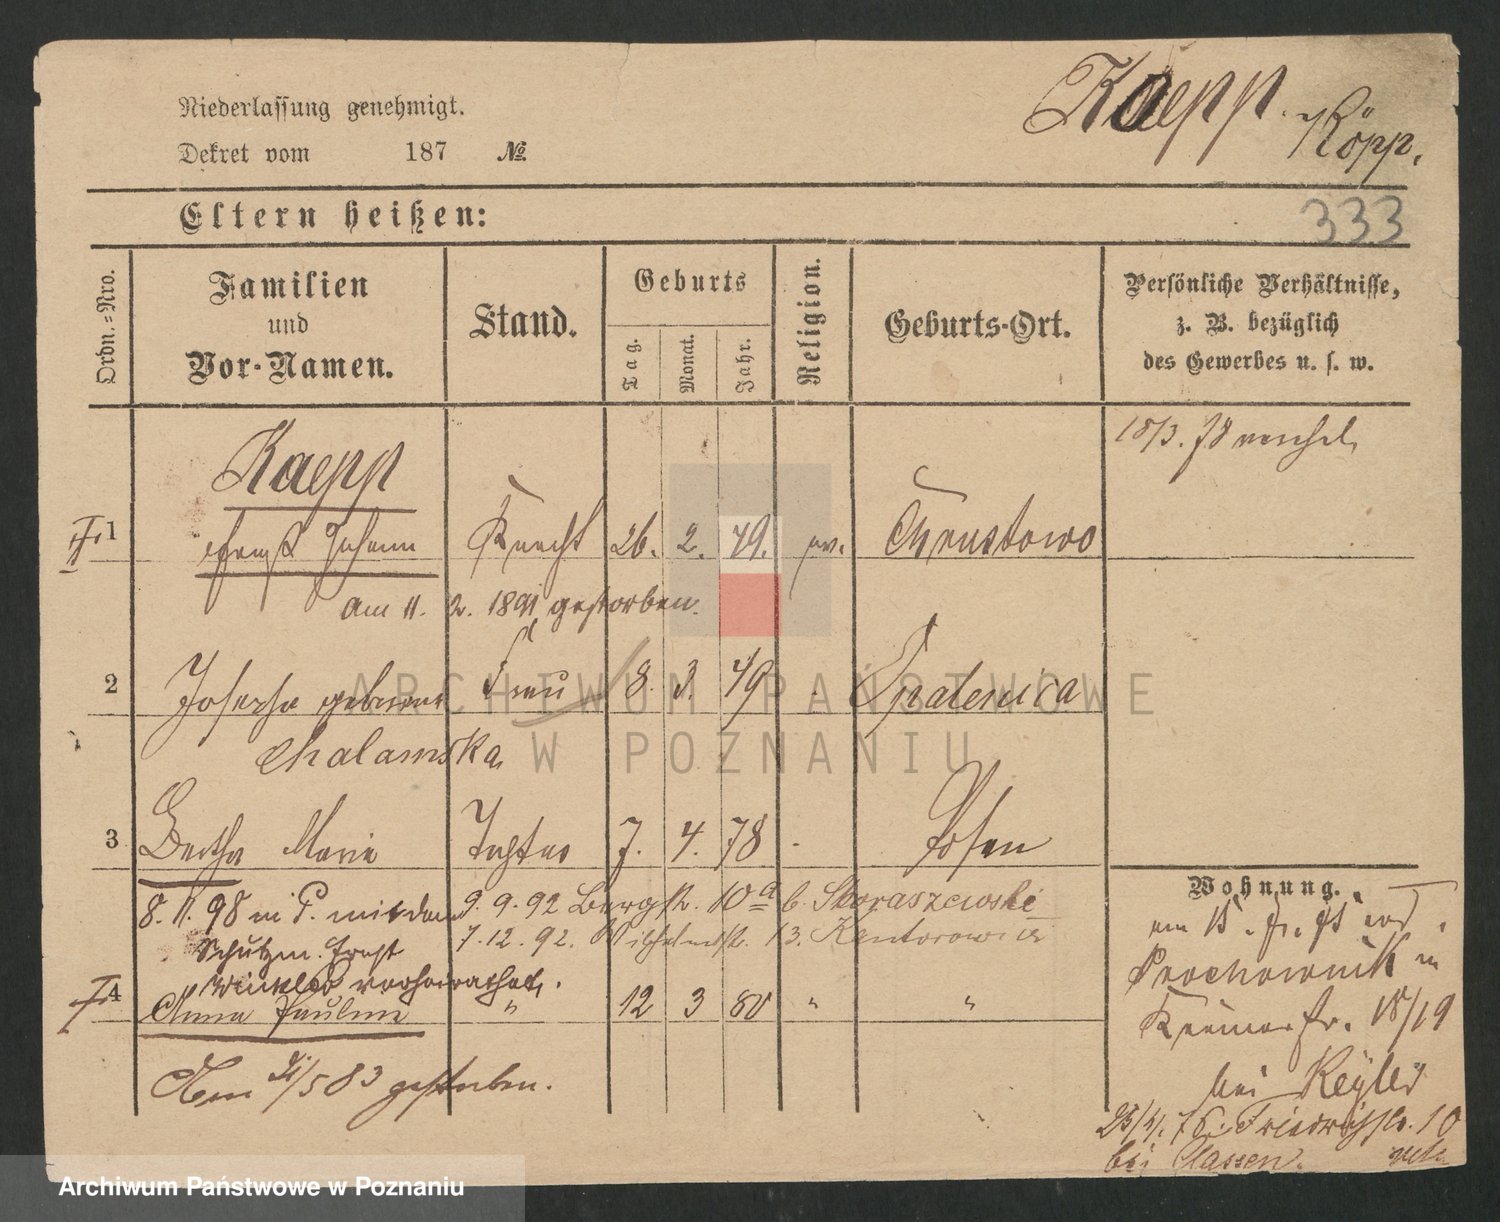 Niederlassung genehmigt.
Dekret vom 187 №
Kaepp. Köpp.
Eltern heißen:
333
Ordn.=Nro.
Familien
und
Vor-Namen.
Stand.
Geburts
Tag.
Monat.
Jahr.
Religion.
Geburts-Ort.
Persönliche Verhältnisse,
z. B. bezüglich
des Gewerbes u. s. w.
18/3. 78
Kaepp
1 Johann Knecht 26. 2. 49. ev. Chrustowo
am 11. 2. 1891 gestorben.
2 Josepha geborene Frau 8. 3. 49 Opalenica
Chalamska
3 Bertha Marie Tochter 7. 4. 78 Posen
8. 11. 98 in P. mit dem
Schutzm. Ernst
Winkler verheirathet.
9. 9. 92 Bergstr. 10a b. Skoraszewski
7. 12. 92. Wilhelmstr. 13. Kantorowicz
4 Anna Pauline " 12 3 80 " "
Am 21/5 83 gestorben.
Wohnung.
am 15.
Prochownik in
Krämerstr. 18/19
bei
Friedrichstr. 10
bei Classen.
ARCHIWUM PAŃSTWOWE
W POZNANIU
Archiwum Państwowe w Poznaniu